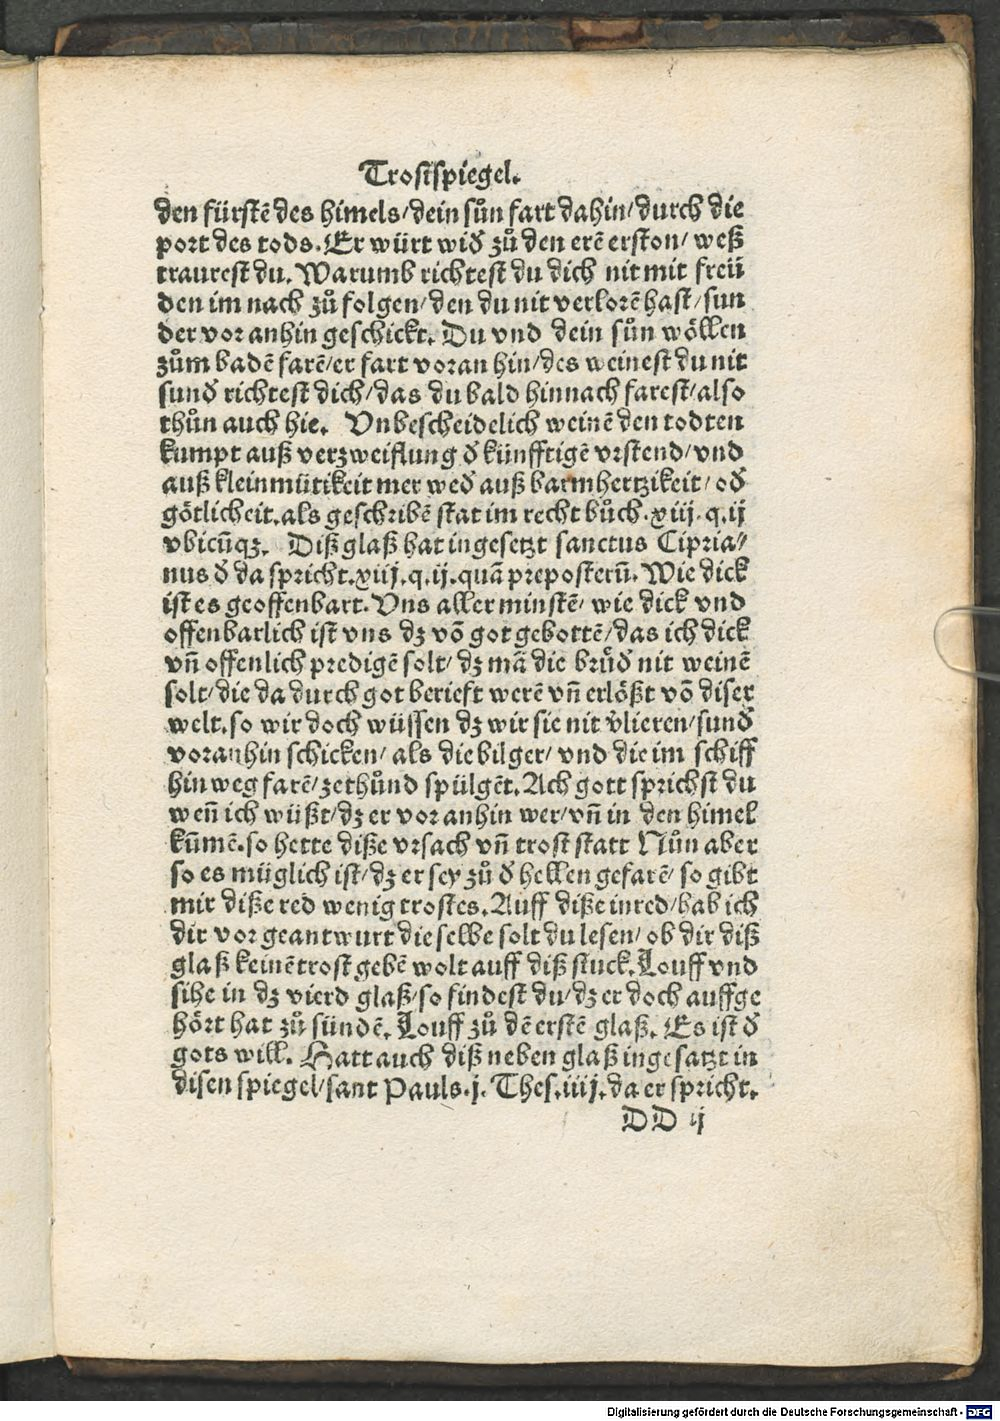 Trostspiegel.
den fürstē des himels/dein sůn fart dahin/durch die
port des tods. Er würt wiđ zů den erē erston/ weß
traurest du. Warumb richtest du dich nit mit freü
den im nach zů folgen/den du nit verlorē hast/sun
der vor anhin geschickt. Du vnd dein sůn wöllen
zům badē farē/er fart voran hin/des weinest du nit
sunđ richtest dich/das du bald hinnach farest/also
thůn auch hie. Vnbescheidelich weinē den todten
kumpt auß verzweiflung đ künfftigē vrstend/vnd
auß kleinmütikeit mer weđ auß barmhertzikeit/ođ
götlicheit.als geschribē stat im recht bůch.xiij.q.ij
vbicūqꝫ. Diß glaß hat ingesetzt sanctus Cipria/
nus đ da spricht.xiij.q.ij.quā preposterū. Wie dick
ist es geoffenbart. Vns aller minstē/ wie dick vnd
offenbarlich ist vns dꝫ vō got gebottē/das ich dick
vñ offenlich predigē solt/ dꝫ mā die brůđ nit weinē
solt/die da durch got berieft werē vñ erlößt vō diser
welt.so wir doch wüssen dꝫ wir sie nit v̄lieren/sunđ
voranhin schicken/ als die bilger/ vnd die im schiff
hinweg farē/zethůnd spülgēt. Ach gott sprichst du
weñ ich wüßt/dꝫ er vor anhin wer/vñ in den himel
kūmē.so hette diße vrsach vñ trost statt Nůn aber
so es müglich ist/dꝫ er sey zů đ hellen gefarē/ so gibt
mir diße red wenig trostes. Auff diße inred/hab ich
dir vor geantwurt die selbe solt du lesen/ ob dir diß
glaß keinē trost gebē wolt auff diß stuck. Louff vnd
sihe in dꝫ vierd glaß/so findest du/dꝫ er doch auffge
hört hat zů sündē. Louff zů dē erstē glaß. Es ist đ
gots will. Hatt auch diß neben glaß ingesatzt in
disen spiegel/sant Pauls.j. Thes.iiij.da er spricht.
DD ij
Digitalisierung gefördert durch die Deutsche Forschungsgemeinschaft - DFG